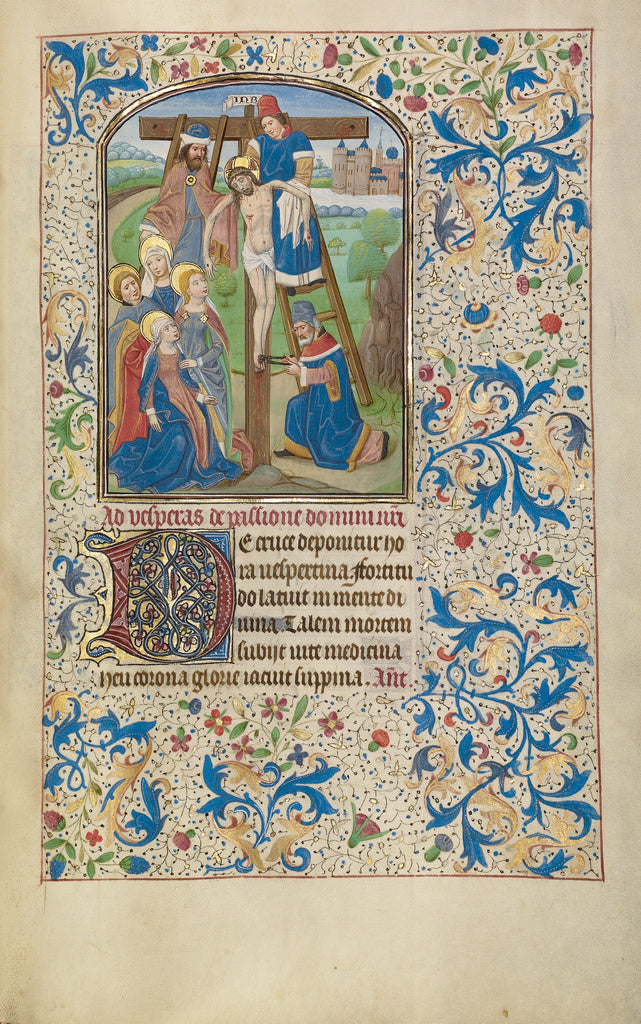 INR
Ad vesperas de passione domini nr̄i
De cruce deponitur ho
ra vespertina fortitu
do latuit in mente di
uina Talem mortem
subijt uite medicina
heu corona glorie iacuit suppina. Ant̄